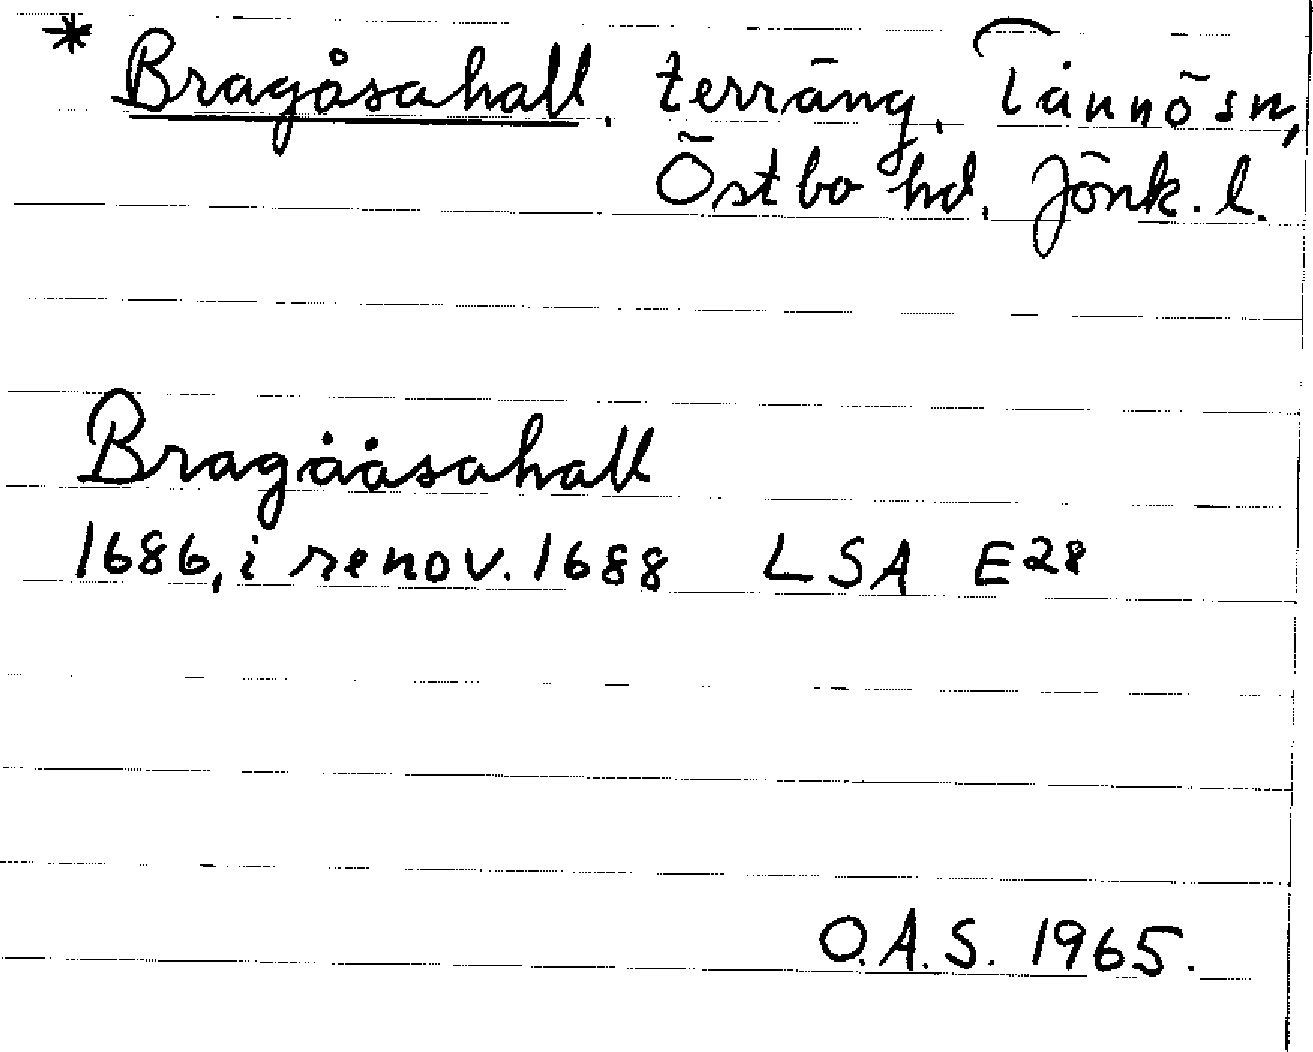 * Bragåsahall, terräng, Tånnö sn,
Östbo hd, Jönk. l.
Bragååsahall
1686, i renov. 1688 LSA E28
O.A.S. 1965.